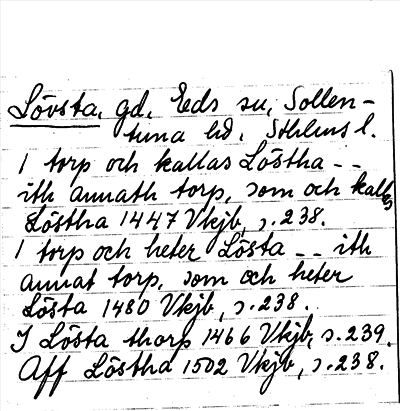 Lövsta, gd, Eds su, Sollen-
tuna hd, Sthlms l.
1 torp och kallas Löstha --
ith annath torp, som och kallas
Löstha 1447 Vkjb, s. 238.
1 torp och heter Lösta -- ith
annat torp, som och heter
Lösta 1480 Vkjb, s. 238.
J Lösta thorp 1466 Vkjb, s. 239.
Aff Löstha 1502 Vkjb, s. 238.